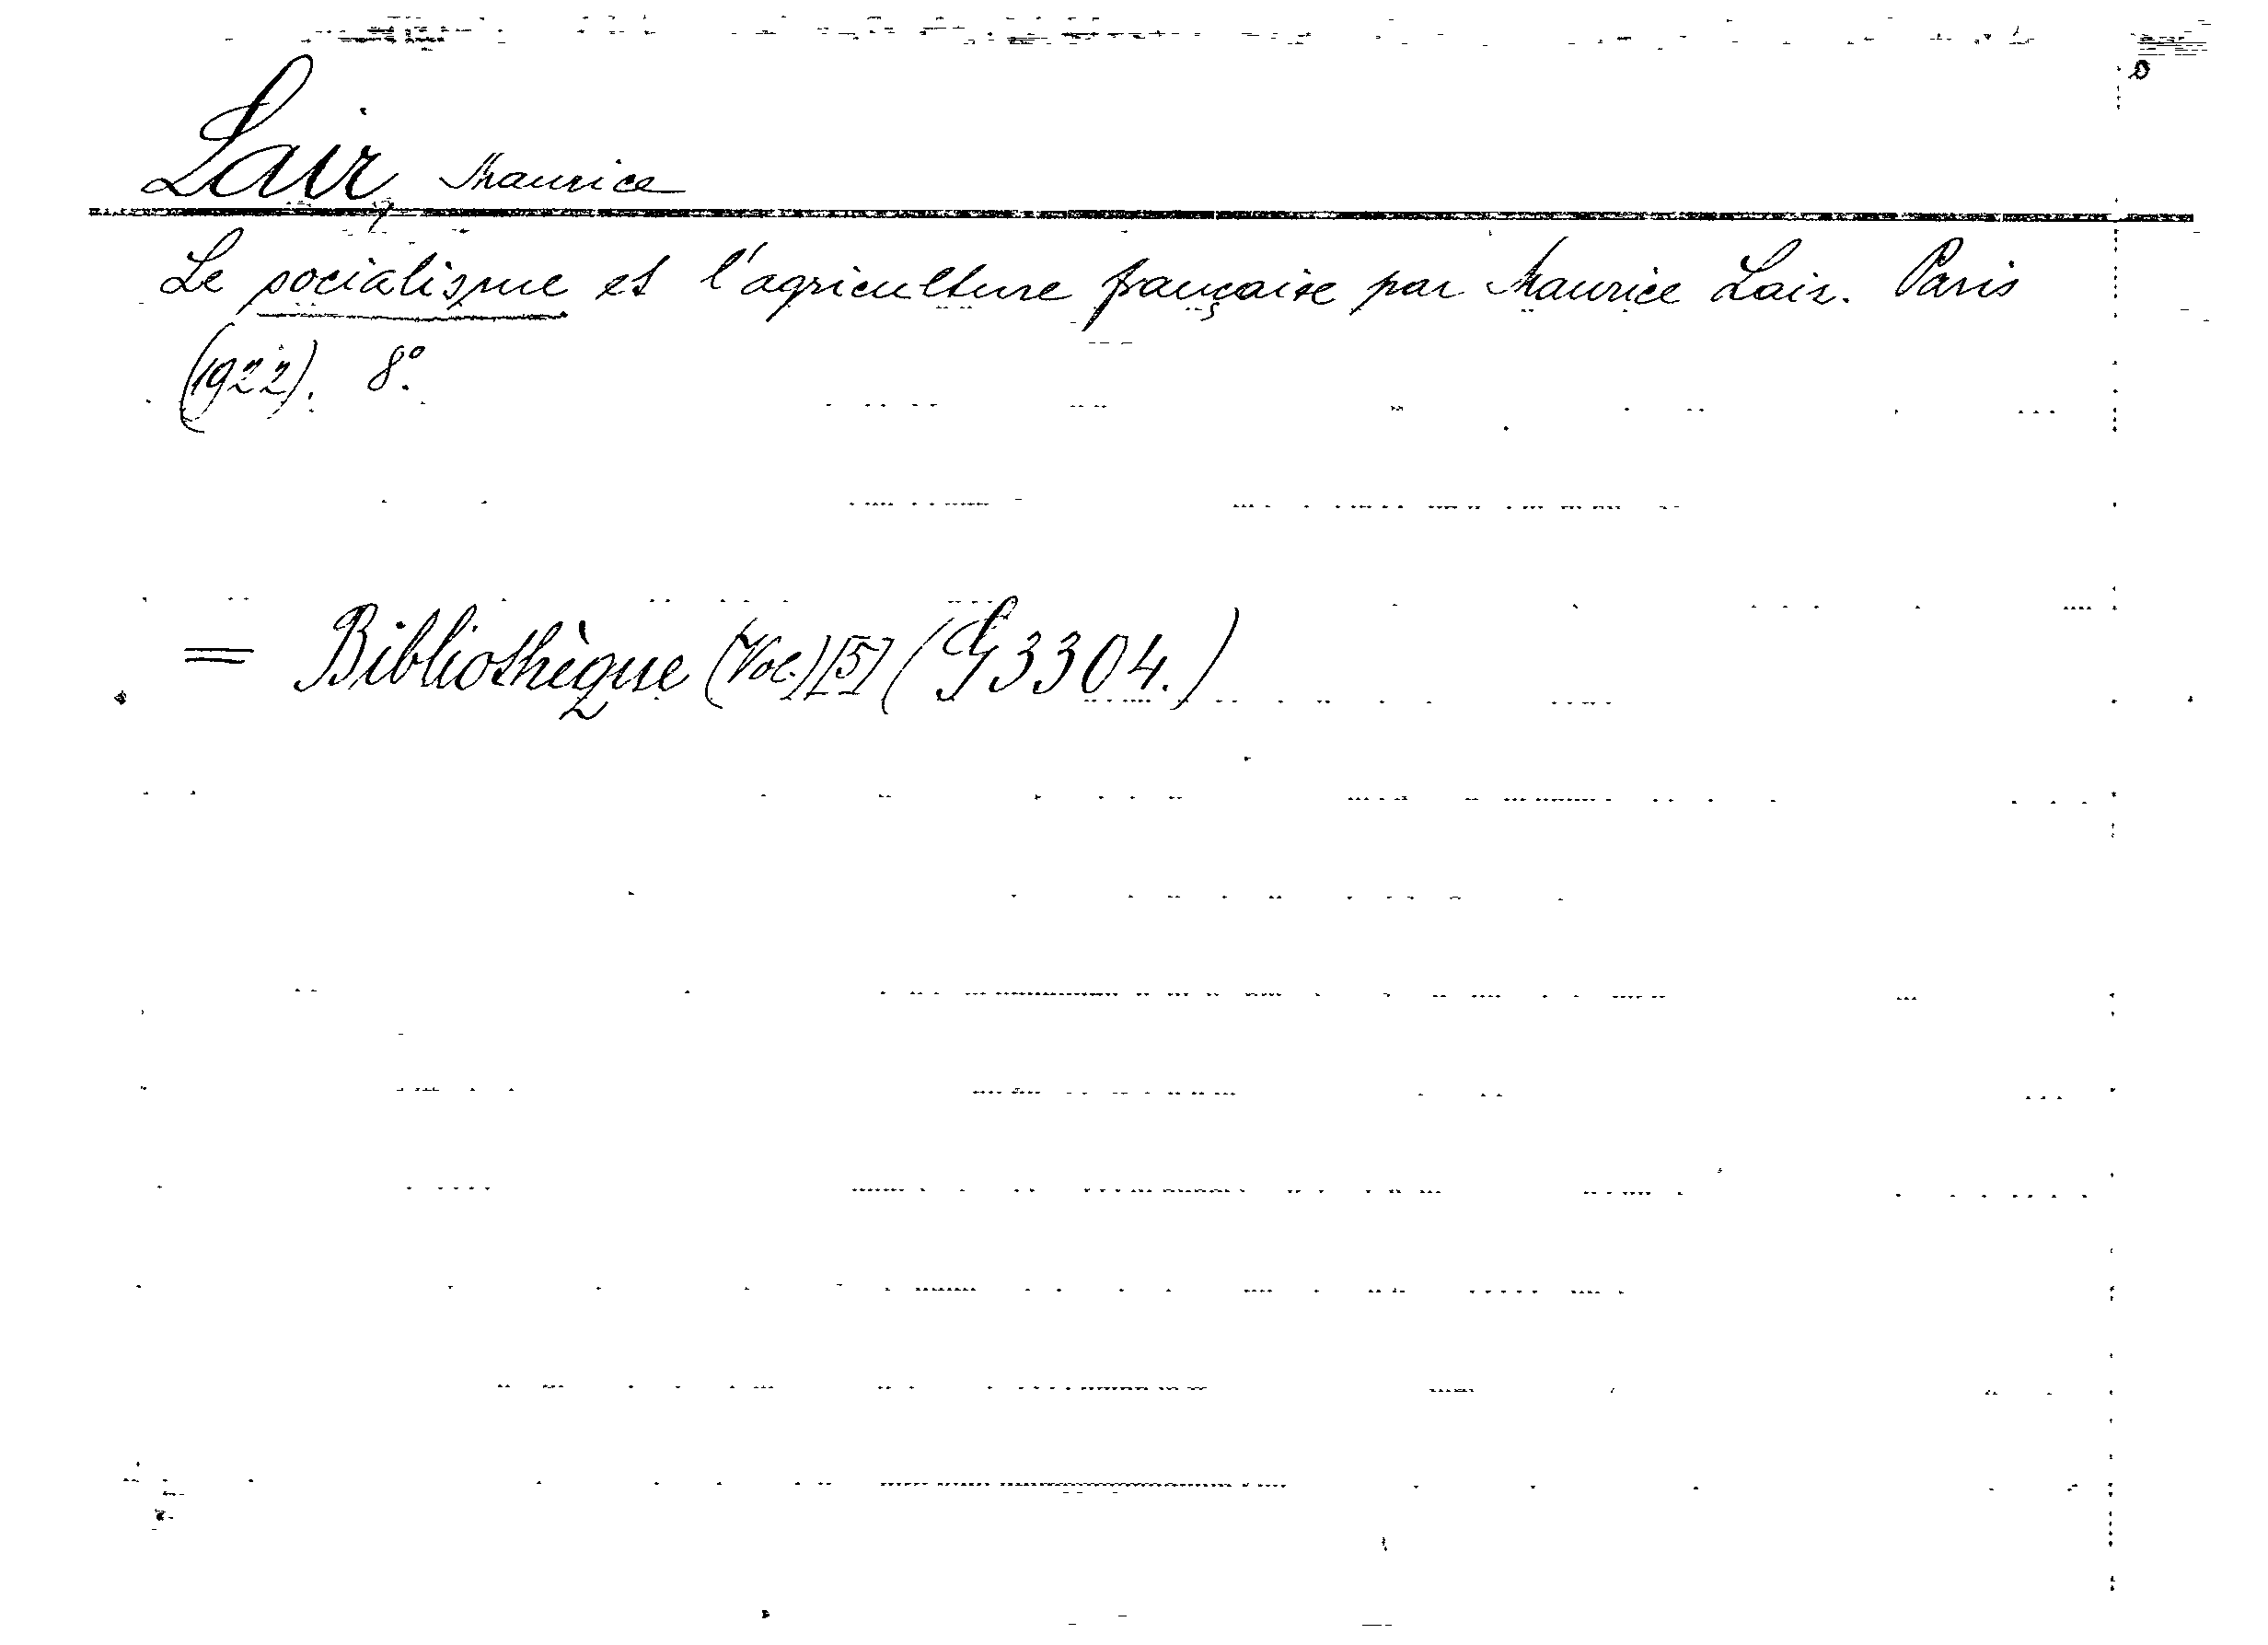 Lair, Maurice
Le socialisme et l'agriculture française par Maurice Lair. Paris
(1922). 8°.
= Bibliothèque (Vol.) [5] (G 3304.)